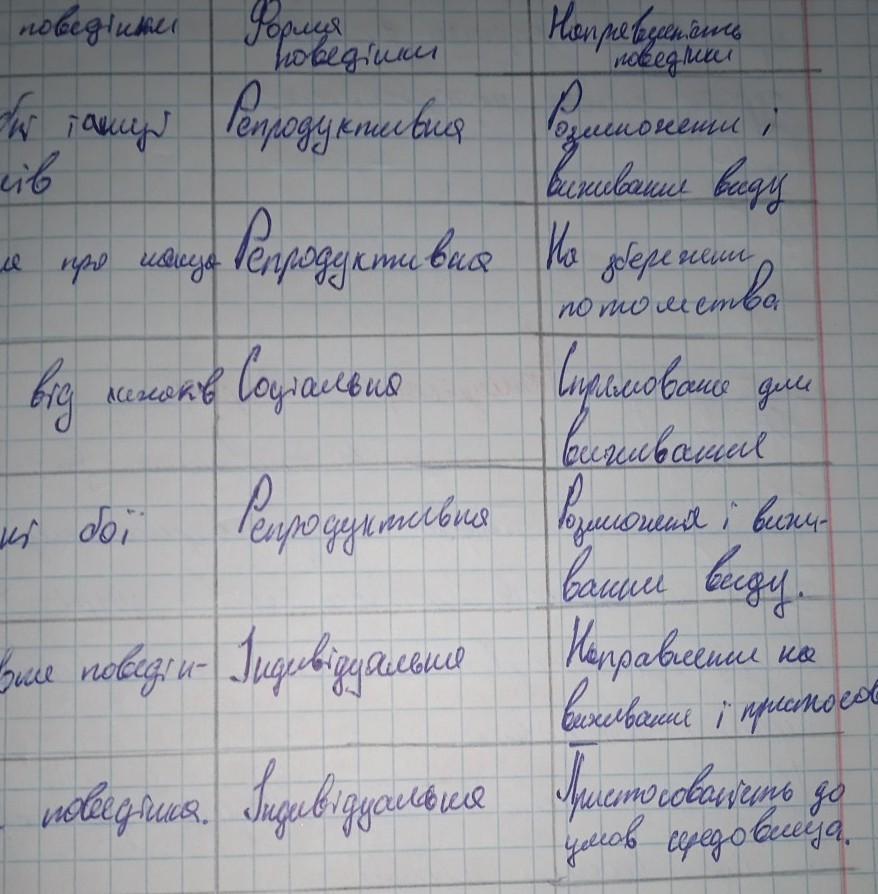 поведінки Форма Направленість
поведінки поведінки
танці Репродуктивна Розмноження і
ків виживання виду
про нащад Репродуктивна На збереження
потомства
від хижаків Соціальна Спрямована для
виживання
бої Репродуктивна Розмноження і вижи-
вання виду.
поведін- Індивідуальна Направлення на
виживання і пристосов
поведінка. Індивідуальна Пристосованість до
умов середовища.